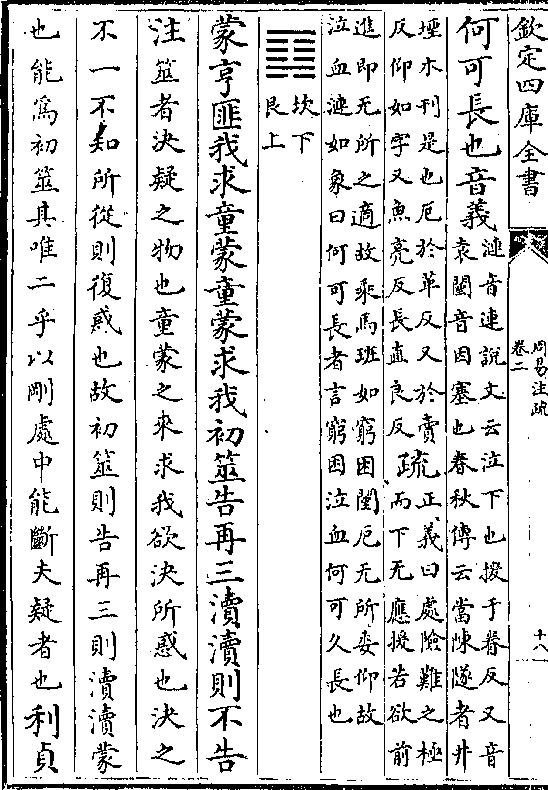 欽定四庫全書
周易注疏
卷二
十八
何可長也音義漣音連説文云泣下也援于眷反又音
袁闉音因塞也春秋傳云當陳隧者井
堙木刊是也厄於革反又於賣
反仰如字又魚亮反長直良反疏正義曰處險難之極
而下无應援若欲前
進即无所之適故乘馬班如窮困闉厄无所委仰故
泣血漣如象曰何可長者言窮困泣血何可久長也
䷃坎下
艮上
蒙亨匪我求童蒙童蒙求我初筮告再三瀆瀆則不告
注筮者決疑之物也童蒙之來求我欲決所惑也決之
不一不知所從則復惑也故初筮則告再三則瀆瀆蒙
也能為初筮其唯二乎以剛處中能斷夫疑者也利貞